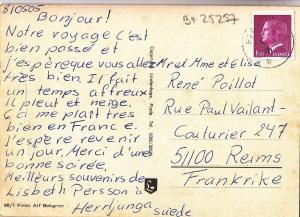 810505
Bonjour!
Br 25257
Notre voyage c'est
bien passé et
j'espèreque vous allez
très bien. Il fait
un temps affreux
il pleut et neige.
Ca me plaît très
bien en France.
J'espère revenir
un jour. Merci d'une
bonne soirée.
Meilleurs souvenirs de
Lisbeth Persson à
Herrljunga
suède
Mr et Mme et Elise
René Poillot
Rue Paul Vaillant-
Couturier 247
51100 Reims
Frankrike